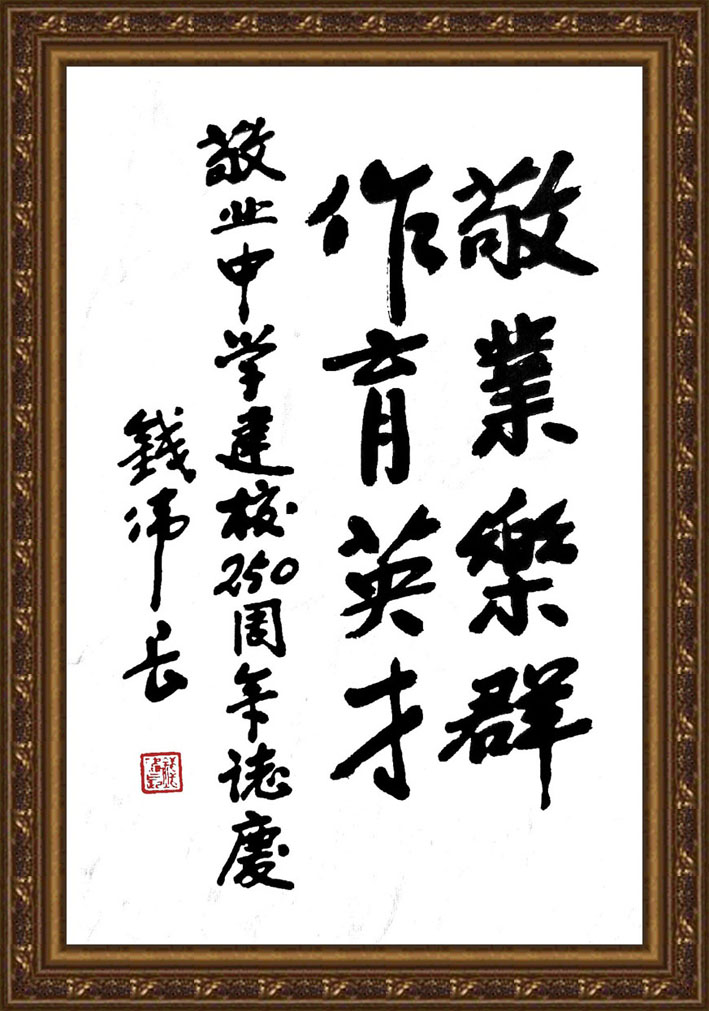 敬業樂群
作育英才
敬业中学建校250周年誌慶
錢伟长